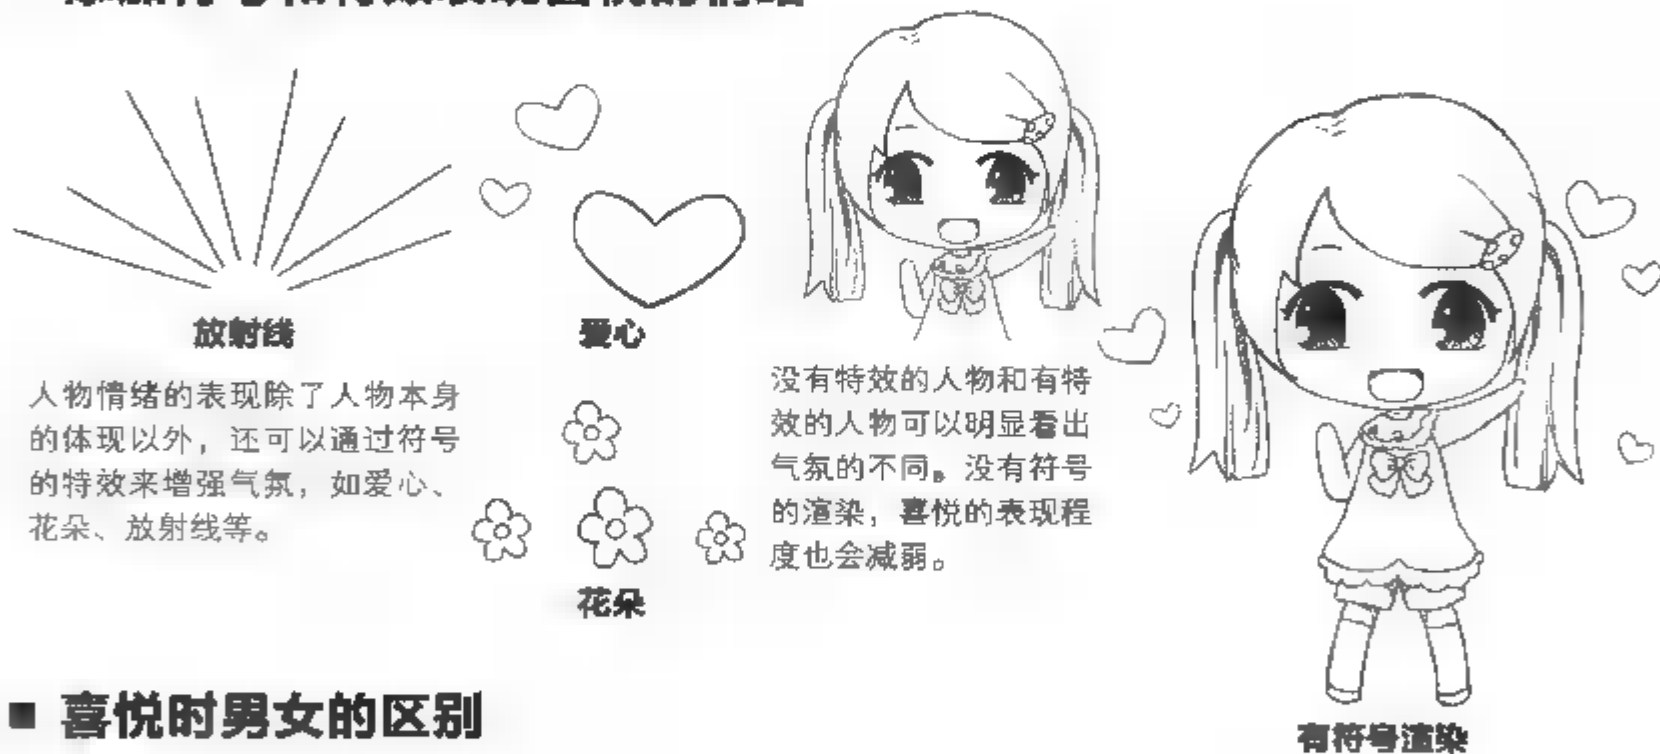 放射线
爱心
人物情绪的表现除了人物本身
的体现以外，还可以通过符号
的特效来增强气氛，如爱心、
花朵、放射线等。
花朵
没有特效的人物和有特
效的人物可以明显看出
气氛的不同。没有符号
的渲染，喜悦的表现程
度也会减弱。
有符号渲染
■ 喜悦时男女的区别